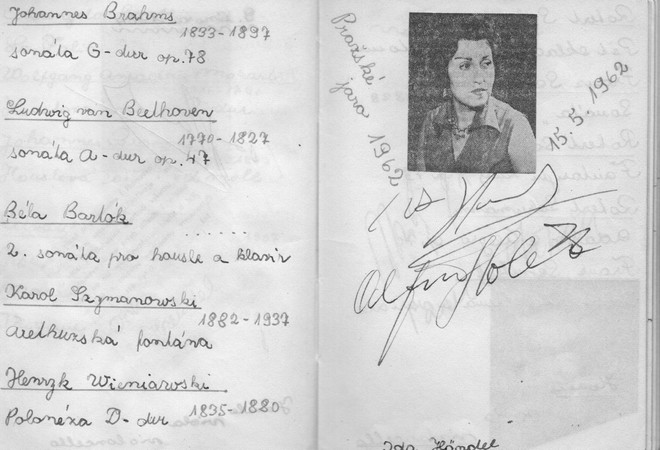 Johannes Brahms
1833-1897
sonáta G-dur op. 78
Ludwig van Beethoven
1770-1827
sonáta A-dur op. 47
Béla Bartók
......
2. sonáta pro housle a klavír
Karol Szymanowski
1882-1937
Arethuzská fontána
Henryk Wieniawski
Polonéza D-dur 1835-1880
Pražské
jaro 1962
15.5.1962
Alfred Holeček
Ida Händel